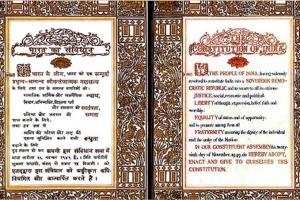 भारत का संविधान
भारत के लोग, भारत को एक सम्पूर्ण
प्रभुत्व-सम्पन्न लोकतंत्रात्मक गणराज्य बनाने
के लिए, तथा उस के समस्त नागरिकों को
सामाजिक, आर्थिक और राजनैतिक न्याय,
विचार, अभिव्यक्ति, विश्वास, धर्म
और उपासना की स्वतंत्रता,
प्रतिष्ठा और अवसर की समता
व्यक्ति की गरिमा और राष्ट्र की
बन्धुता
अपनी इस संविधान सभा में
इस संविधान को अंगीकृत,
अधिनियमित और आत्मार्पित करते हैं।
THE
CONSTITUTION OF INDIA
WE, THE PEOPLE OF INDIA, having solemnly
resolved to constitute India into a SOVEREIGN DEMO-
CRATIC REPUBLIC and to secure to all its citizens:
JUSTICE, social, economic and political;
LIBERTY of thought, expression, belief, faith and
worship;
EQUALITY of status and of opportunity;
and to promote among them all
FRATERNITY assuring the dignity of the individual
and the unity of the Nation;
IN OUR CONSTITUENT ASSEMBLY this twenty-
sixth day of November, 1949, do HEREBY ADOPT,
ENACT AND GIVE TO OURSELVES THIS
CONSTITUTION.